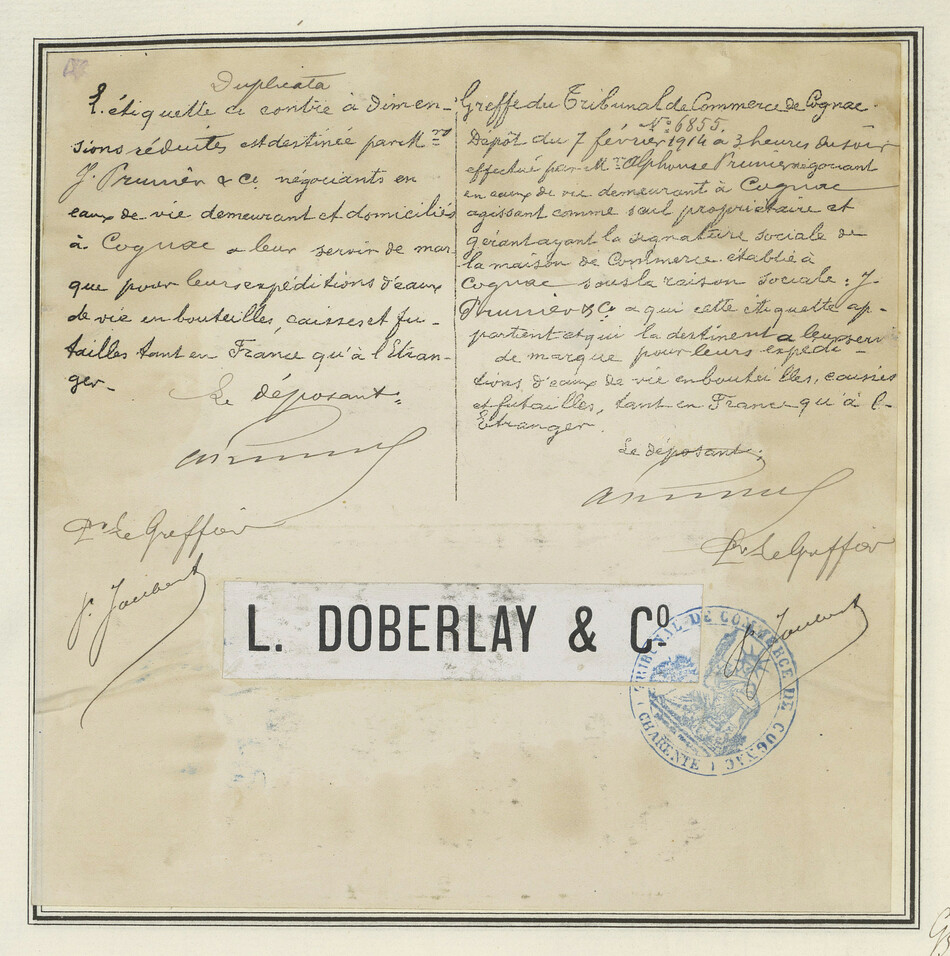 Duplicata
L'étiquette ci contre à dimen-
sions réduites est destinée par Mrs
J. Prunier & Co négociants en
eaux de vie demeurant et domiciliés
à Cognac a leur servir de mar-
que pour leurs expéditions d'eaux
de vie en bouteilles, caisses et fu-
tailles tant en France qu'à l'Etran-
ger.
Le déposant:
Pr Le Greffier
J. Joubert
Greffe du Tribunal de Commerce de Cognac.
No 6855.
Dépôt du 7 février 1914 à 3 heures du soir
effectué par Mr Alphonse Prunier négociant
en eaux de vie demeurant à Cognac
agissant comme seul propriétaire et
gérant ayant la signature sociale de
la maison de Commerce établie à
Cognac sous la raison sociale: J.
Prunier & Co a qui cette étiquette ap-
partient et qui la destinent a leur servir
de marque pour leurs expédi-
tions d'eaux de vie en bouteilles, caisses
et futailles, tant en France qu'à l'
Etranger.
Le déposant:
Pr Le Greffier
L. DOBERLAY & Co.
TRIBUNAL DE COMMERCE DE COGNAC
(CHARENTE)